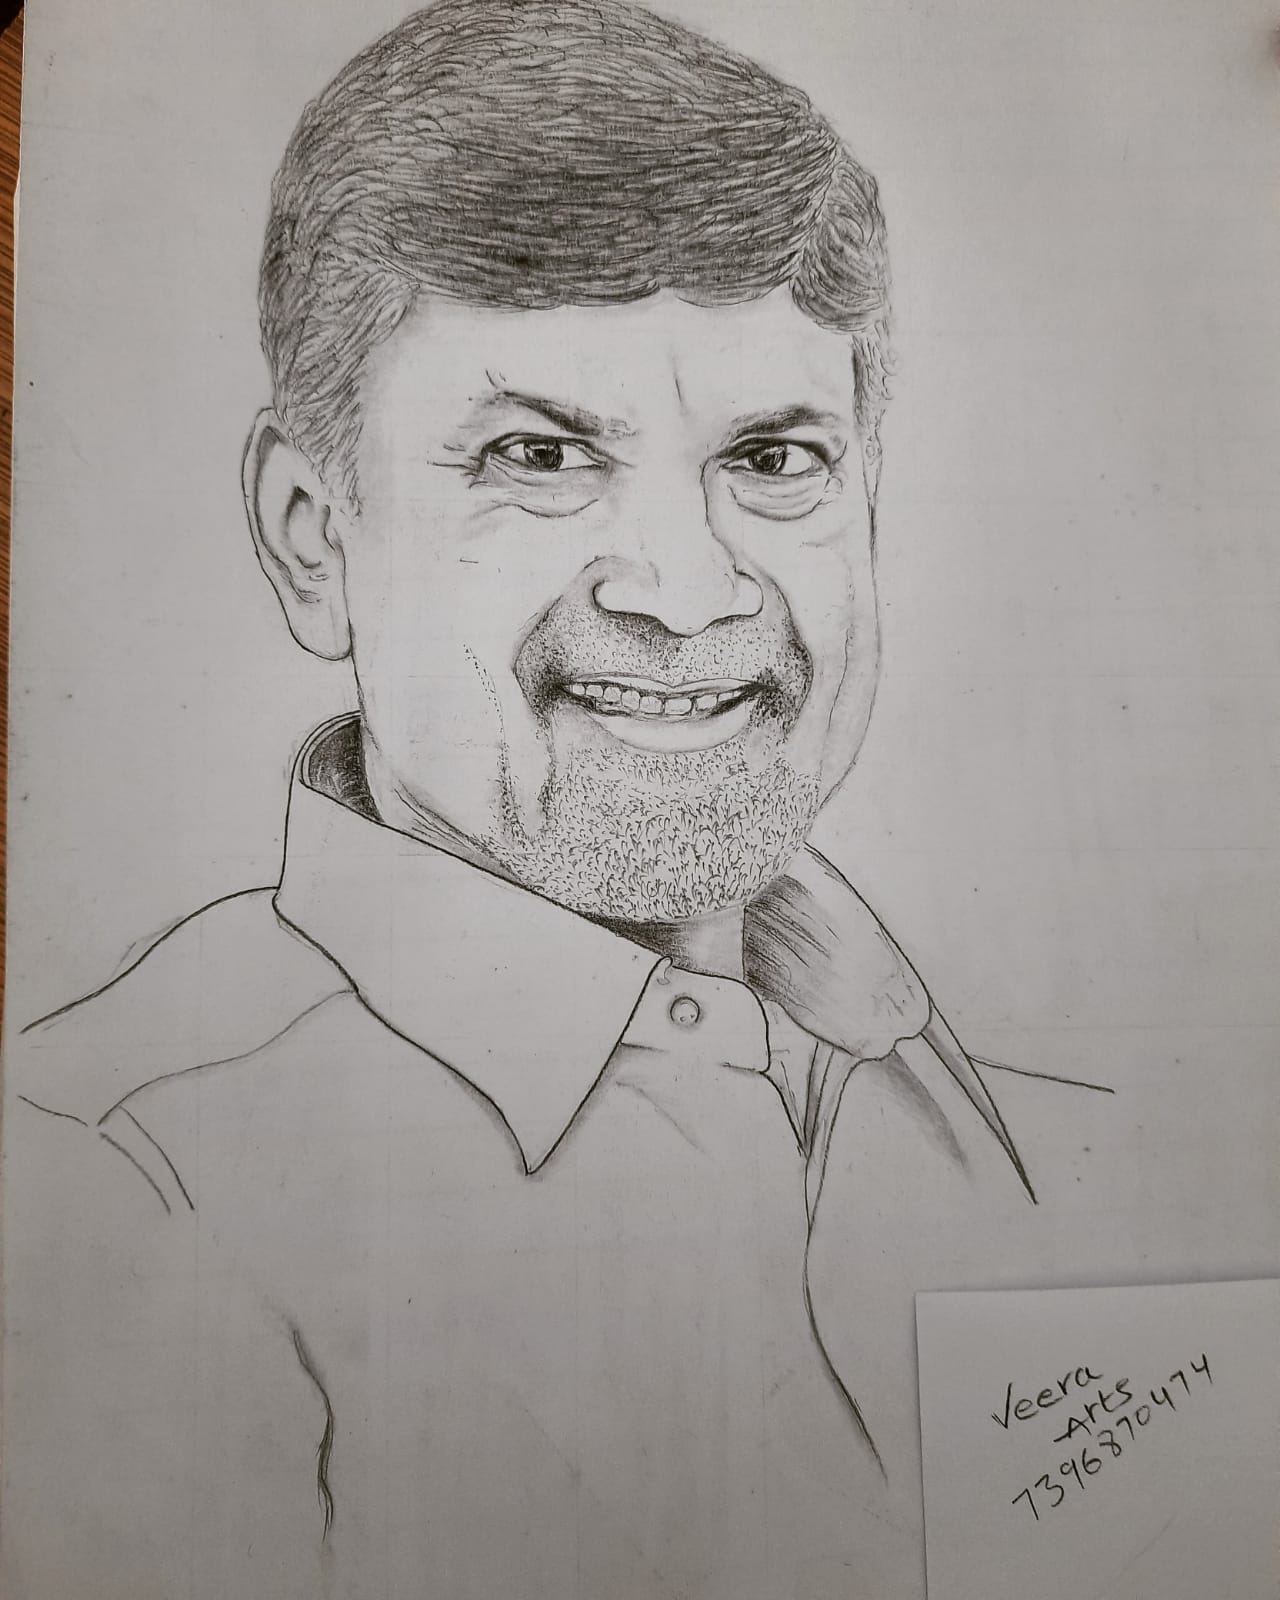 Veera
Arts
7396870474